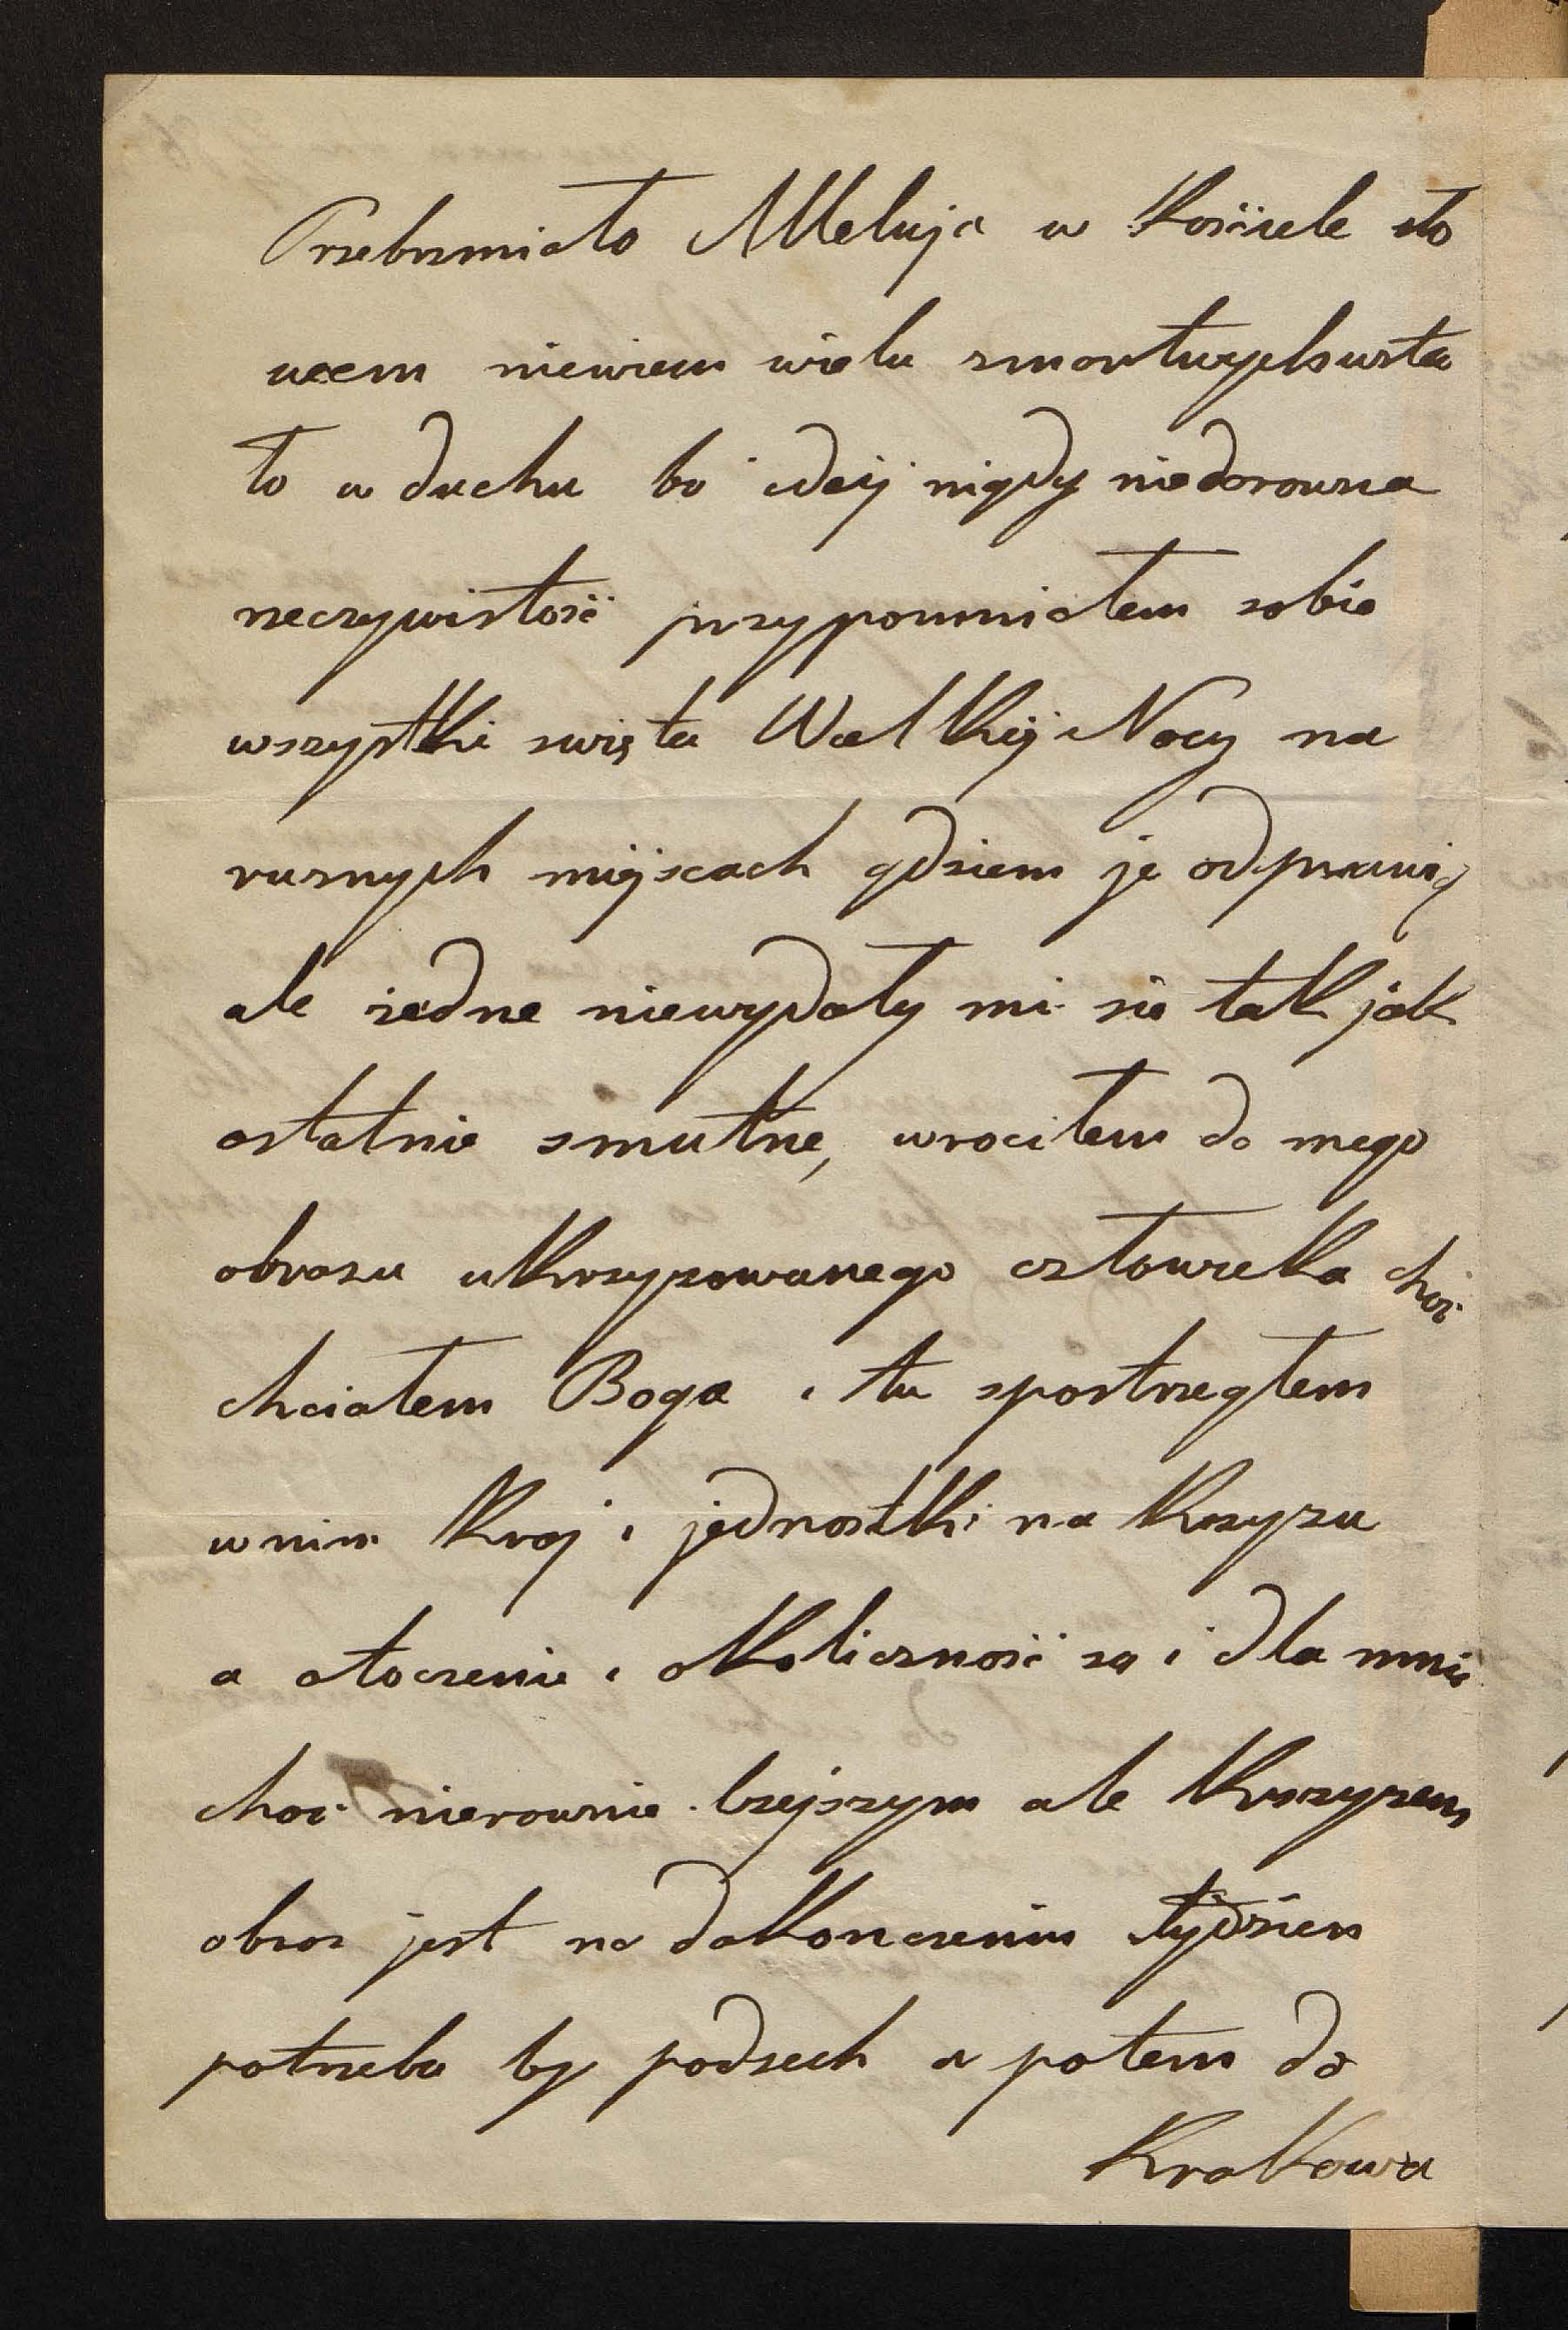 Przebrzmiało Alleluja w Kościele sło
wem niewiem wielu zmartwychwsta
ło w duchu bo idéj nigdy niedorowna
rzeczywistość przypomniałem sobie
wszystkie swięta Wielkiéj Nocy na
rusnych miéjscach gdziem je odprawią
ale żadne niewydały mi sie tak jak
ostatnie smutne, wrocilem do mego
obrazu ukrzyzowanego człowieka choć
chciałem Boga i tu spostrzegłem
w nim Kraj i jednostki na Krzyzu
a otoczenie i okoliczność są i dla mnie
choć nierownie lzejszym ale Krzyzem
obraz jest na dokonczeniu tydzien
potrzeba by podsech a potem do
Krakowa